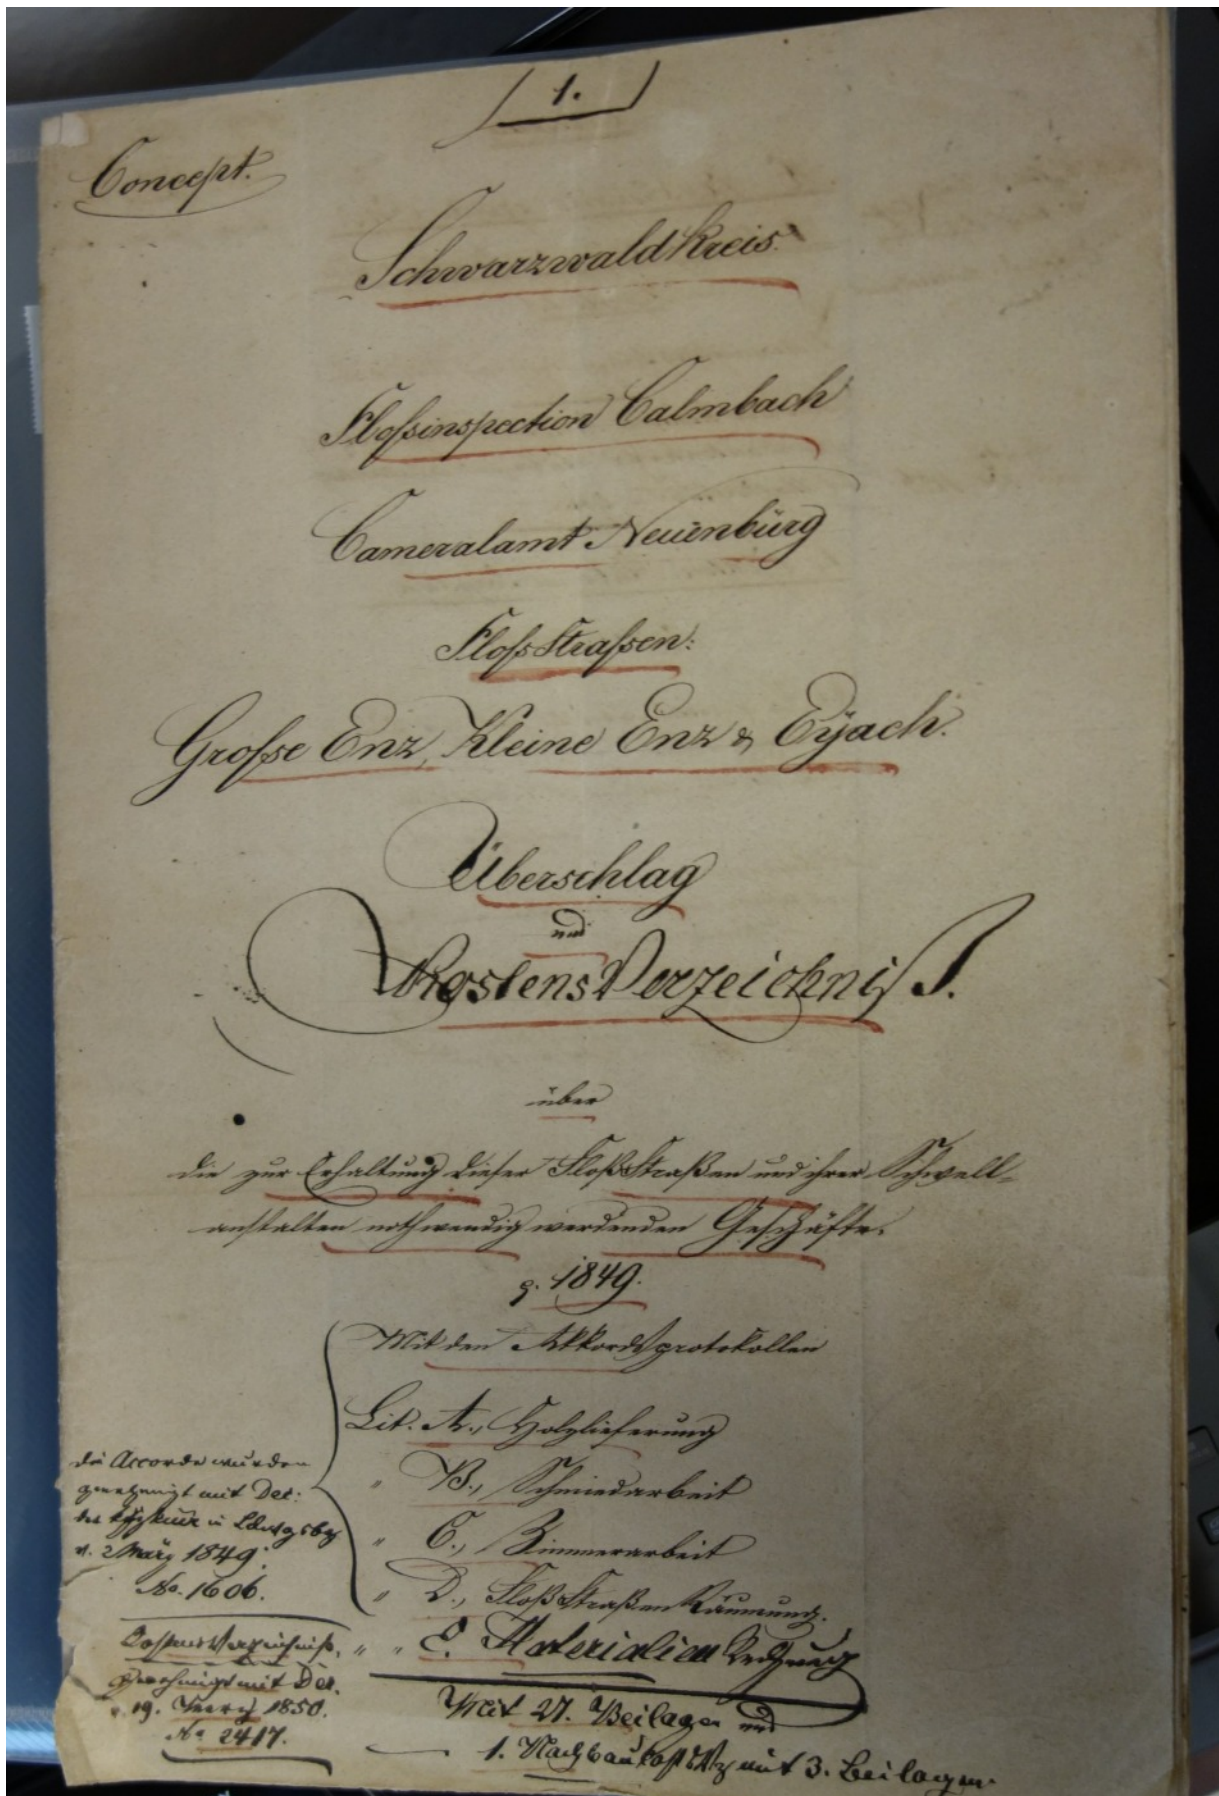 1.
Concept.
Schwarzwaldkreis.
Flossinspection Calmbach
Cameralamt Neuenbürg
Floss Strassen:
Grosse Enz, Kleine Enz & Eÿach.
Überschlag
und
Kostens Verzeichniß
über
die zur Erhaltung dieser Floß Straßen und ihrer Schwell-
anstalten nothwendig werdenden Geschäfte.
p. 1849.
Mit den Akkords protokollen
Lit. A., Holzlieferung
" B., Schmiedarbeit
" C., Zimmerarbeit
" D., Floß Straßen Räumung.
" " E. Materialien
Mit 27. Beilagen und
1. mit 3. Beilagen.
die Accorde wurden
genehmigt mit Dec:
der in
v. 2 März 1849.
No. 1606.
Kostens Verzeichniß,
Genehmigt mit Dec.
v. 19. 1850.
No 2417.